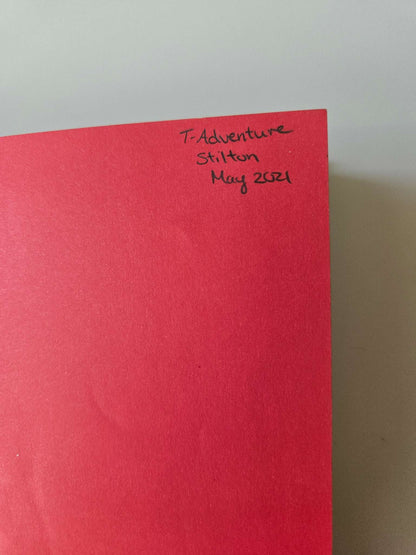 T-Adventure
Stilton
May 2021